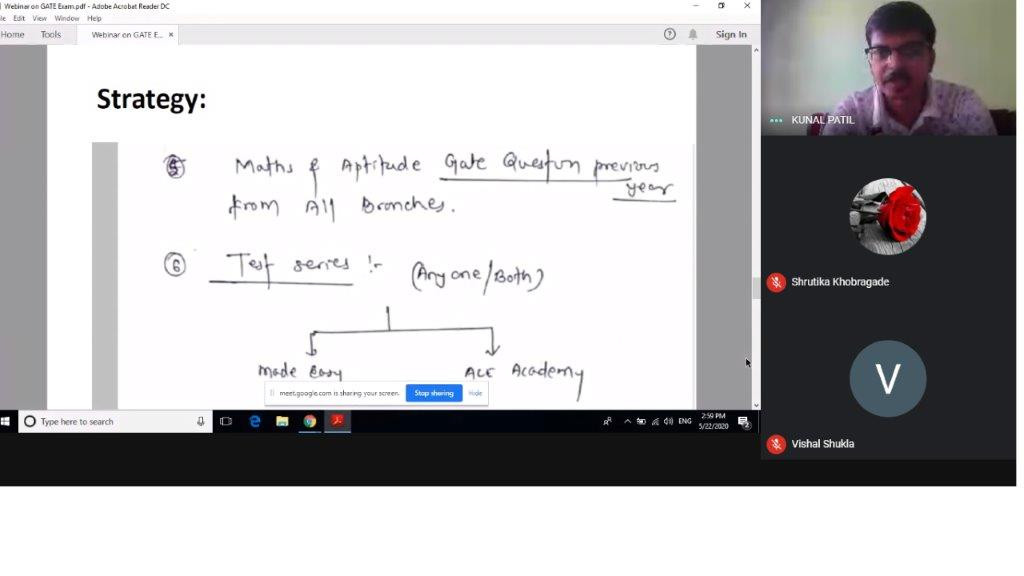 Webinar on GATE Exam.pdf - Adobe Acrobat Reader DC
le Edit View Window Help
Home Tools Webinar on GATE E... × Sign In
Strategy:
5 Maths & Aptitude Gate Question previous
year
from All Branches.
6 Test series :- (Any one/Both)
Made Easy ACE Academy
meet.google.com is sharing your screen. Stop sharing Hide
Type here to search
ENG 2:59 PM
5/22/2020
KUNAL PATIL
Shrutika Khobragade
V
Vishal Shukla